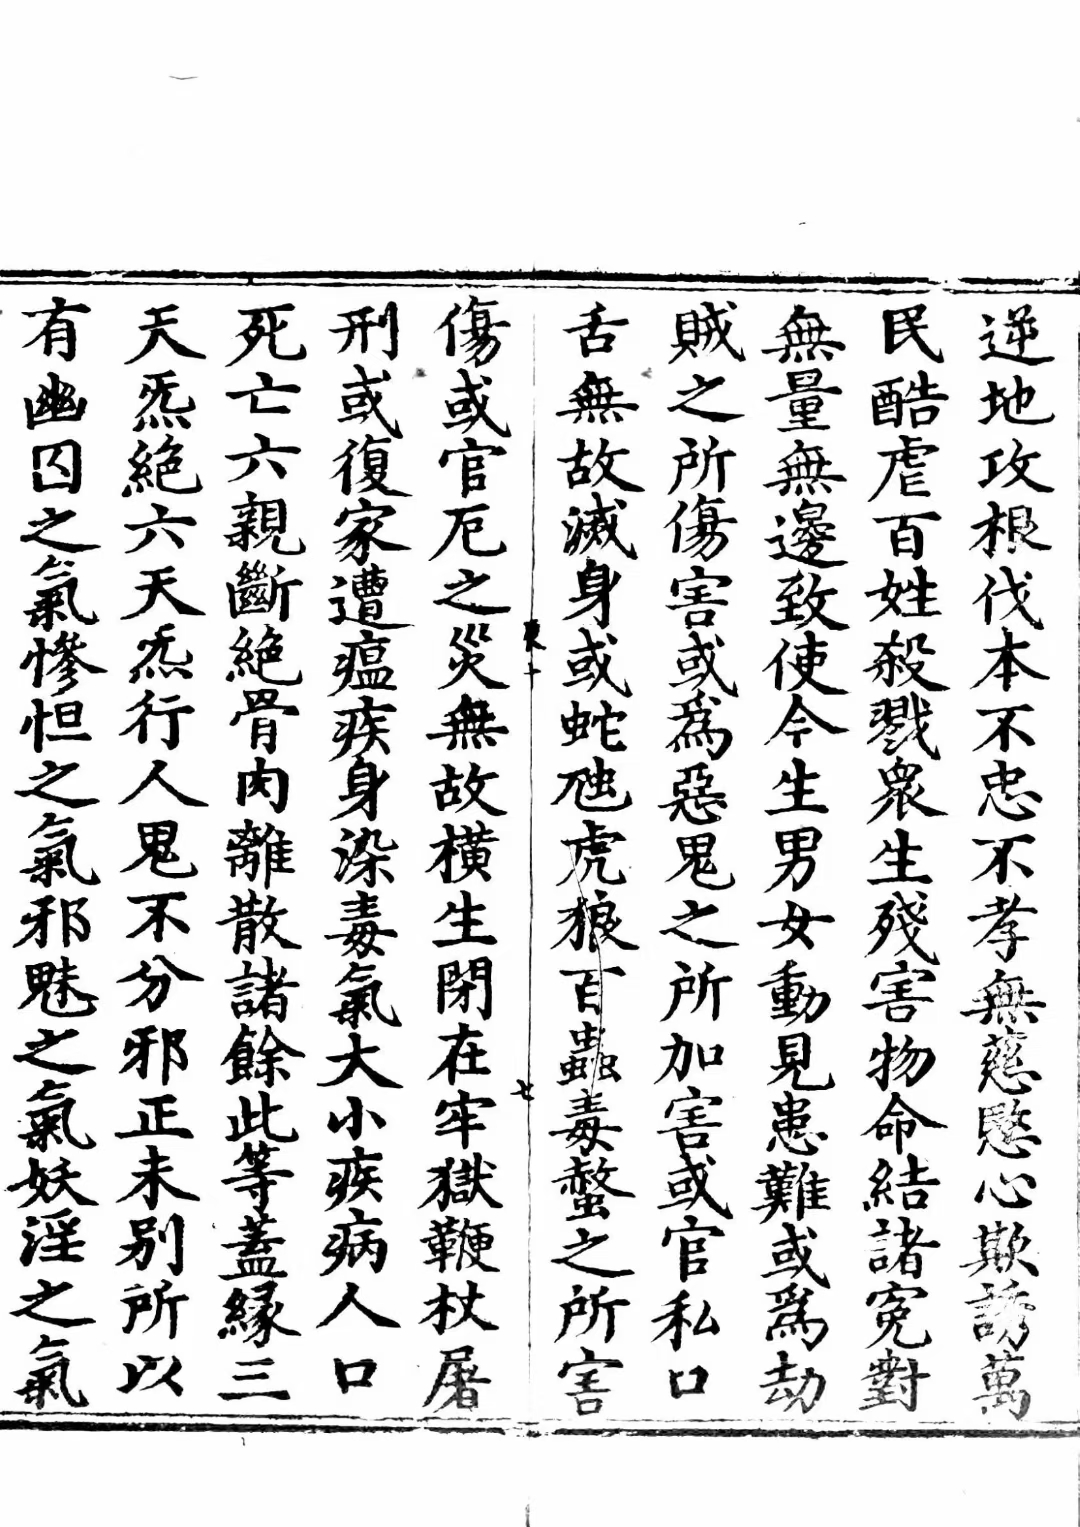 逆地攻根伐本不忠不孝無慈愍心欺誘萬
民酷虐百姓殺戮衆生殘害物命結諸冤對
無量無邊致使今生男女動見患難或爲劫
賊之所傷害或爲惡鬼之所加害或官私口
舌無故滅身或蛇虺虎狼百蟲毒螫之所害
七
傷或官厄之災無故橫生閉在牢獄鞭杖屠
刑或復家遭瘟疾身染毒氣大小疾病人口
死亡六親斷絕骨肉離散諸餘此等蓋緣三
天炁絕六天炁行人鬼不分邪正未別所以
有幽囚之氣慘怛之氣邪魅之氣妖淫之氣